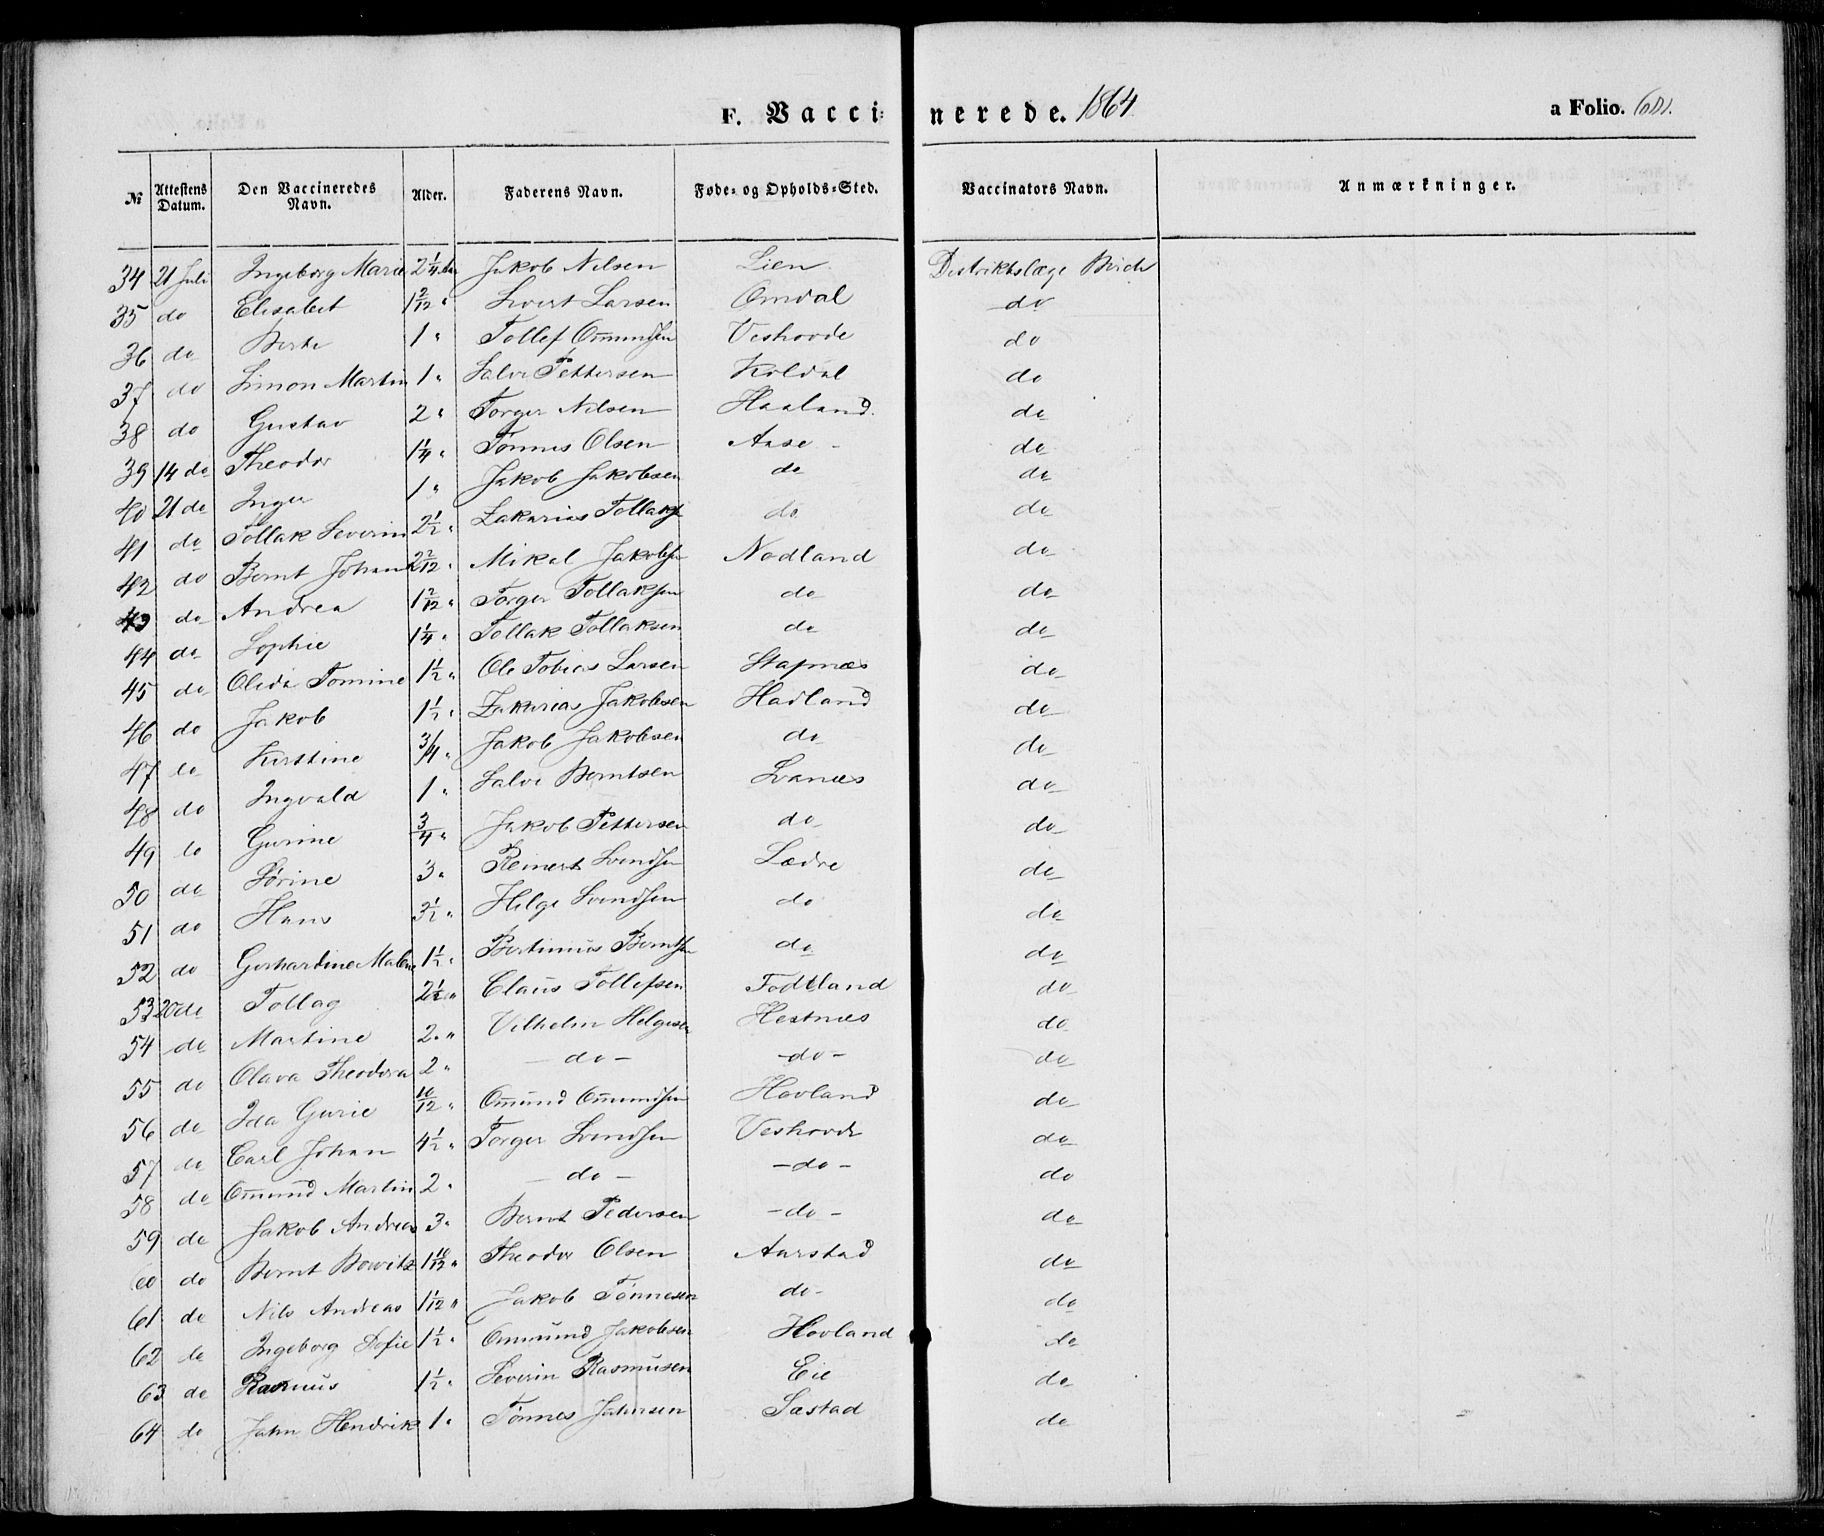 F. Vaccinerede. 1864
a Folio.
№ | Attestens Datum. | Den Vaccineredes Navn. | Alder. | Faderens Navn. | Føde- og Opholds-Sted. | Vaccinators Navn. | Anmærkninger.
34 21 Juli Ingeborg Marie 2 1/4 Jakob Nilsen Lien Distriktslæge
35 do Elisabet 1 2/12 " Sivert Larsen Omdal do
36 do Berte 1 " Tollef Omundsen Veshovde do
37 do Simon Martin 1 " Salve Pettersen Koldal do
38 do Gustav 2 " Torger Nilsen Haaland do
39 14 do Theodor 1 1/4 " Tønnes Olsen Aase do
40 21 do Inger 1 " Jakob Jakobsen do do
41 do Tollak Severin 2 1/2 " Zakarias Tollaks do do
42 do Bernt Johan 2 2/12 " Mikal Jakobsen Nodland do
43 do Andrea 1 2/12 " Torger Tollaksen do do
44 do Sophie 1 1/4 " Tollak Tollaksen do do
45 do Olida Tomine 1 1/2 " Ole Tobias Larsen Stapnæs do
46 do Jakob 1 1/2 " Zakarias Jakobsen Hadland do
47 do Kirstine 3/4 " Jakob Jakobsen do do
48 do Ingvald 1 " Salve Berntsen Svanæs do
49 do Gurine 3/4 " Jakob Pettersen do do
50 do Sørine 3 " Reinert Svendsen Lædre do
51 do Hans 3 1/2 " Helge Svendsen do do
52 do Gerhardine Malene 1 1/2 " Bertinius Berntsen do do
53 20 do Tollag 2 1/2 " Claus Tollefsen Fodtland do
54 do Martine 2 " Vilhelm Helgesen Hestnæs do
55 do Olava Theodora 2 " - do - - do - do
56 do Ida Gurie 10/12 " Omund Omundsen Hovland do
57 do Carl Johan 4 1/2 " Torger Svendsen Veshovde do
58 do Omund Martin 2 " - do - - do - do
59 do Jakob Andreas 3 " Bernt Pedersen - do - do
60 do Bernt 1 10/12 " Theodor Olsen Aarstad do
61 do Nils Andreas 1 1/12 " Jakob Tønnesen do - do
62 do Ingeborg Sofie 1 1/2 " Ommund Jakobsen Hovland do
63 do Rasmus 1 1/2 " Severin Rasmusen Eie do
64 do Jahn Hendrik 1 " Tønnes Jahnsen Sæstad do